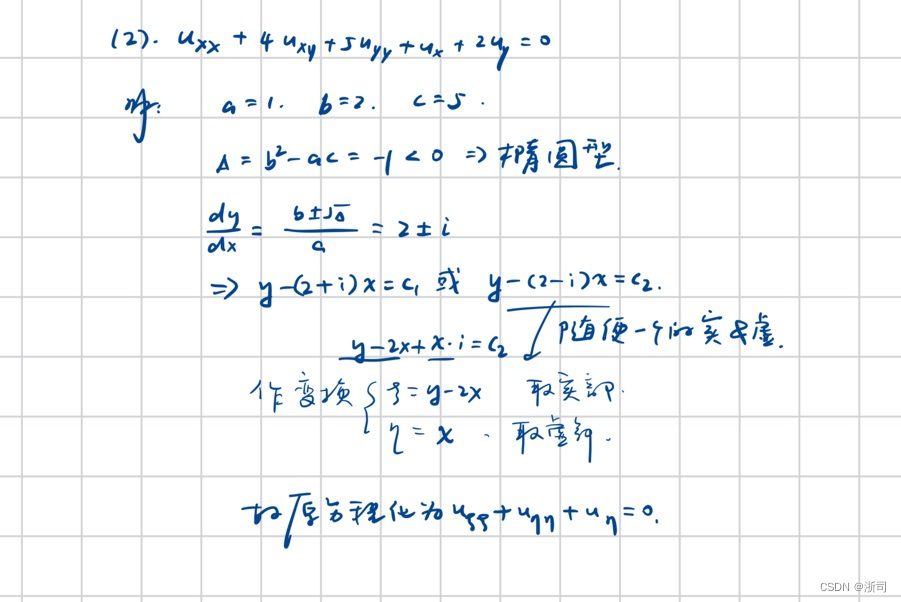 (2). uₓₓ + 4uₓᵧ + 5uᵧᵧ + uₓ + 2uᵧ = 0
解: a=1. b=2. c=5.
Δ = b² - ac = -1 < 0 => 椭圆型.
dy/dx = (b±√Δ)/a = 2±i
=> y-(2+i)x=c₁ 或 y-(2-i)x=c₂.
y-2x+x·i=c₂ 随便一个的实&虚.
作变换 { ξ=y-2x 取实部.
η=x . 取虚部.
故原方程化为 u_ξξ + u_ηη + u_η = 0.
CSDN @浙司